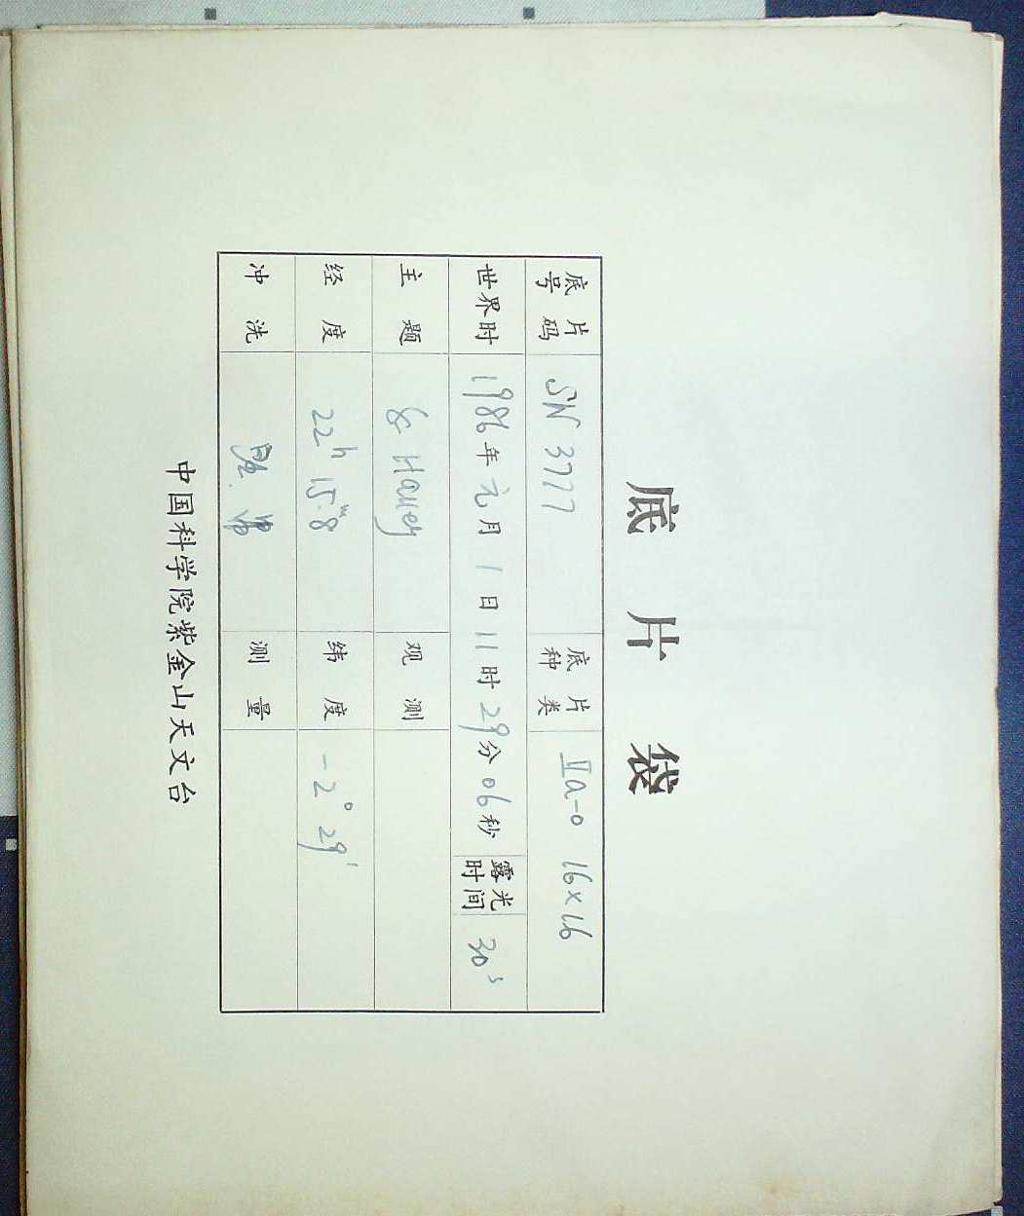 底片袋
底片号码 SN 3777 底片种类 IIa-o 16×16
世界时 1986年元月1日11时29分06秒 露光时间 30s
主题 Halley 观测
经度 22h 15m.8 纬度 -2° 29′
冲洗 测量
中国科学院紫金山天文台